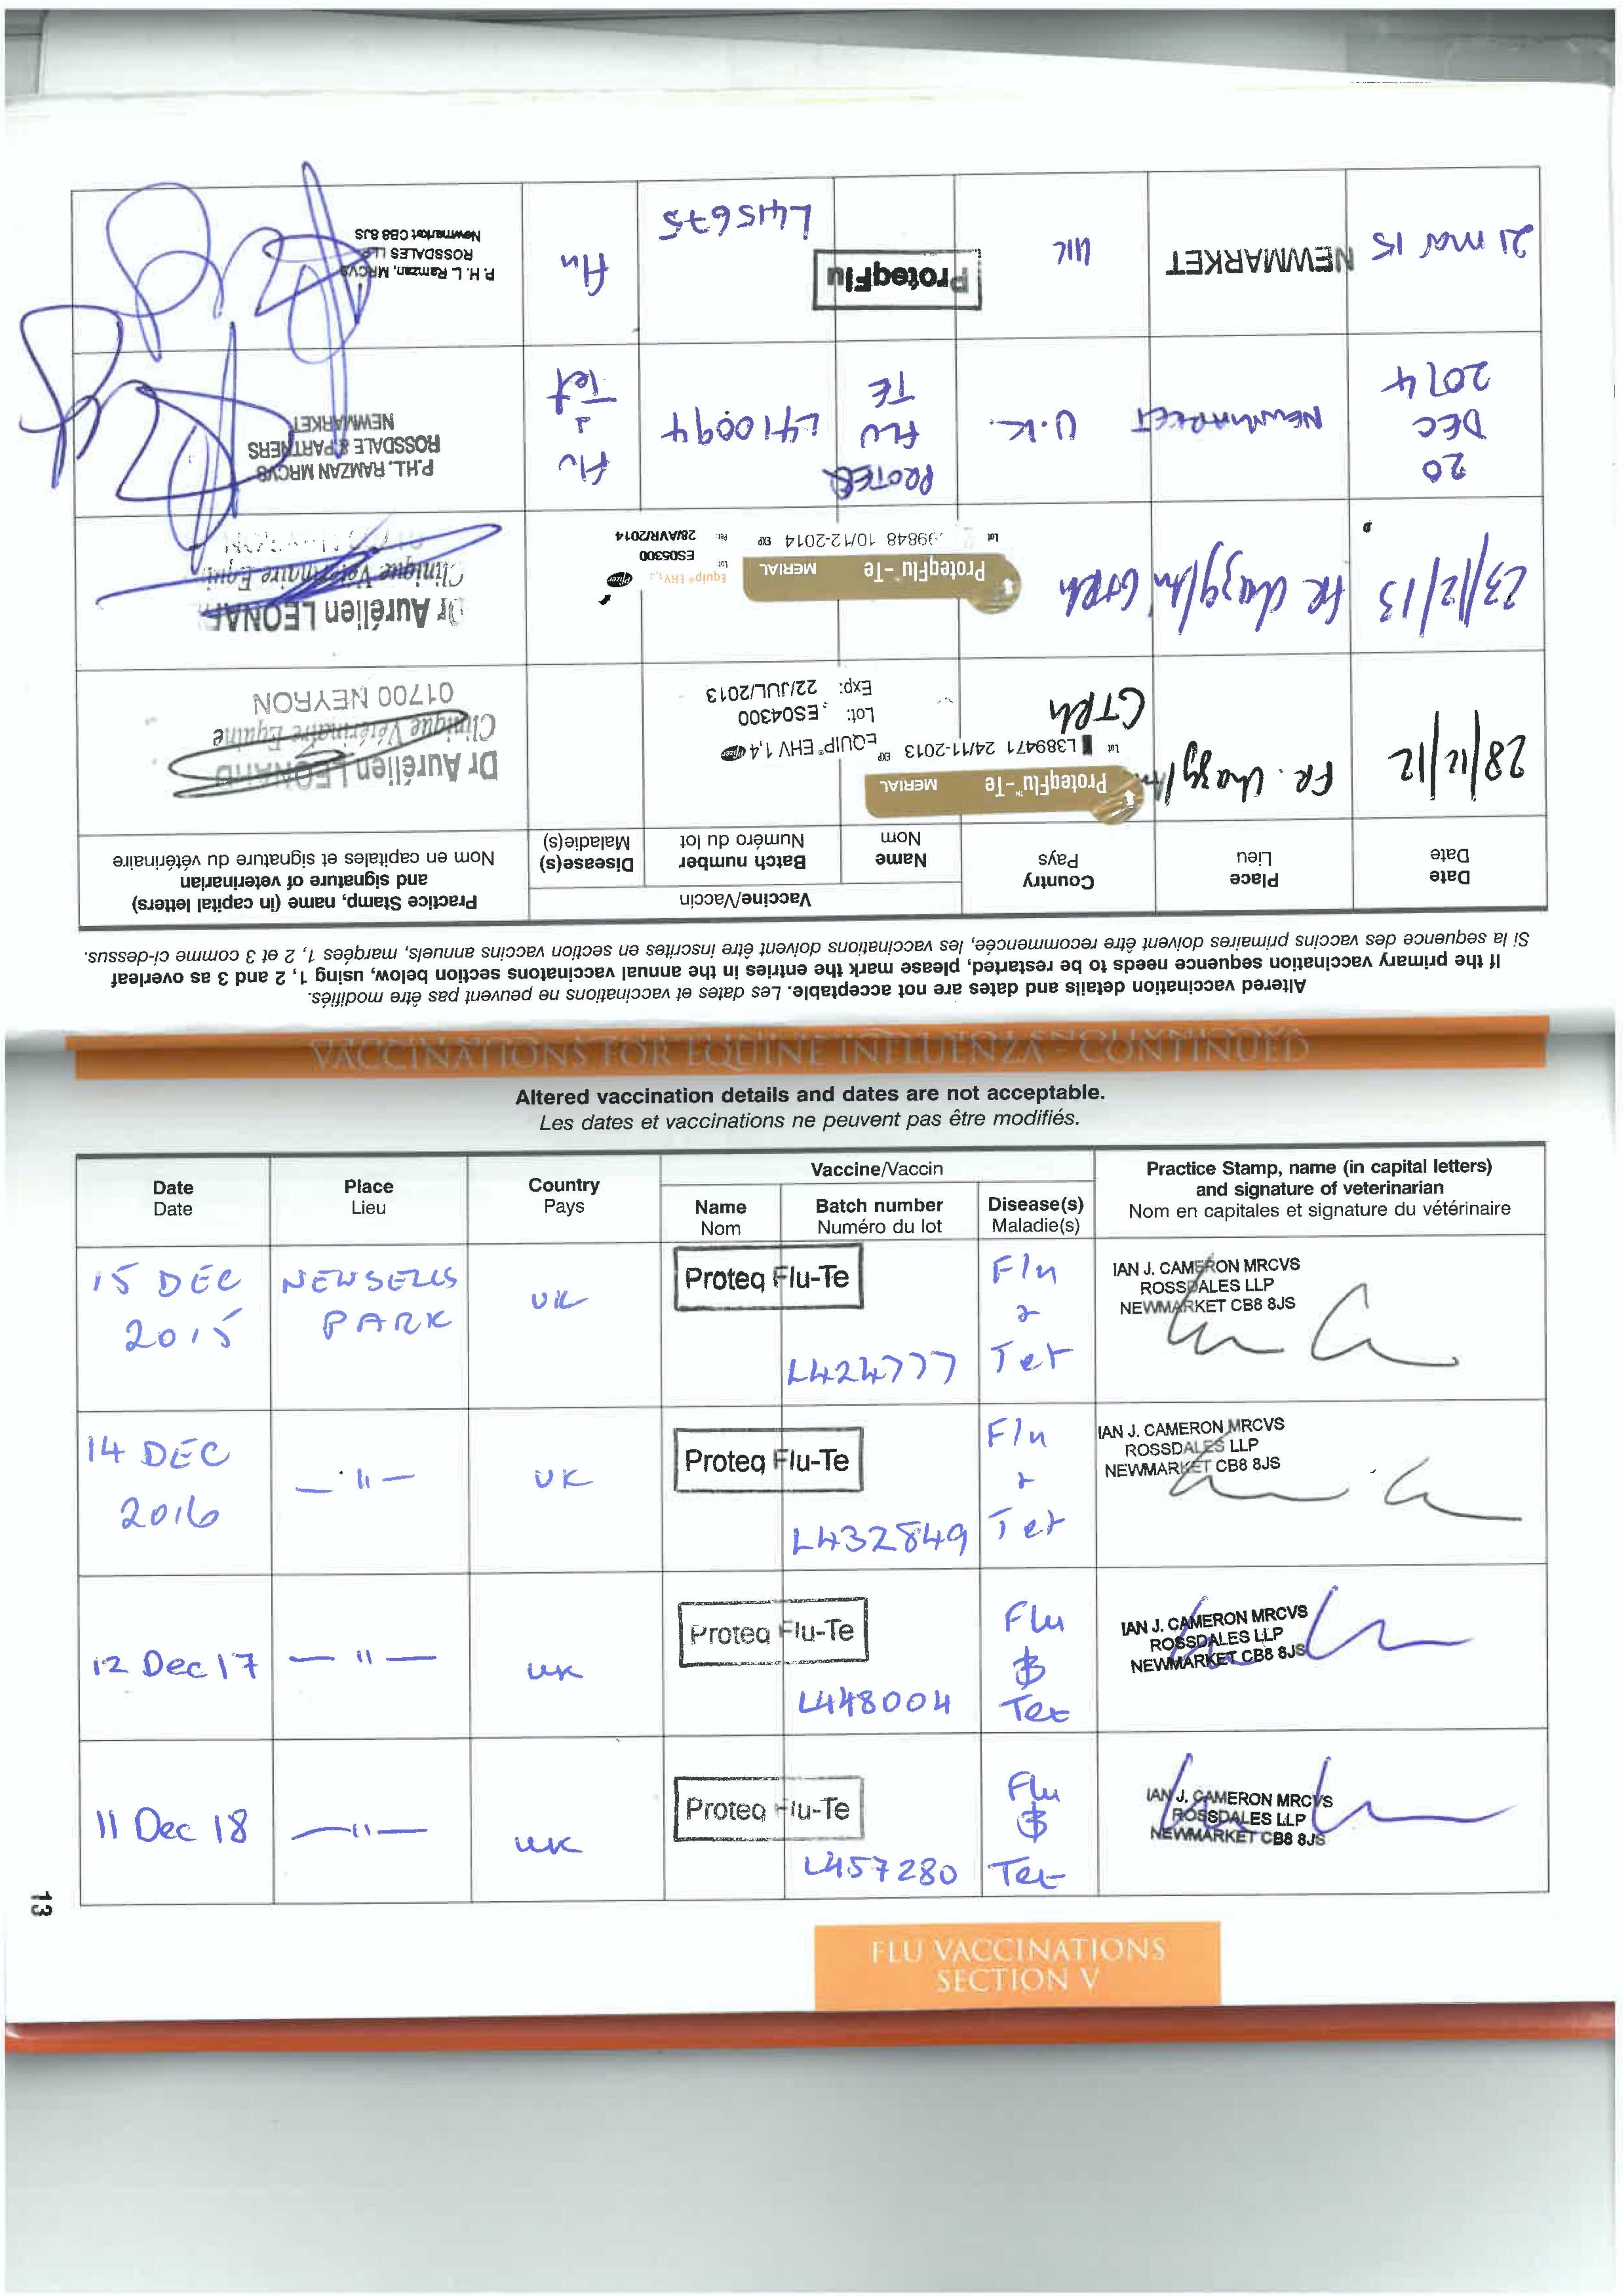 Altered vaccination details and dates are not acceptable. Les dates et vaccinations ne peuvent pas être modifiés.
If the primary vaccination sequence needs to be restarted, please mark the entries in the annual vaccinatons section below, using 1, 2 and 3 as overleaf
Si la sequence des vaccins primaires doivent être recommencée, les vaccinations doivent être inscrites en section vaccins annuels, marqées 1, 2 et 3 comme ci-dessus.
Date
Date
Place
Lieu
Country
Pays
Vaccine/Vaccin
Name
Nom
Batch number
Numéro du lot
Disease(s)
Maladie(s)
Practice Stamp, name (in capital letters)
and signature of veterinarian
Nom en capitales et signature du vétérinaire
28/12/12
FR.
GTRh
ProteqFlu™-Te MERIAL
Lot L389471 24/11-2013 EXP
EQUIP® EHV 1,4 Pfizer
Lot: ES04300
Exp: 22/JUL/2013
Dr Aurélien LEONARD
Clinique Vétérinaire Equine
01700 NEYRON
23/12/13
FR
GTRh
ProteqFlu™-Te MERIAL
Lot 99848 10/12-2014 EXP
Equip® EHV 1,4 Pfizer
Lot ES05300
Per. 28/AVR/2014
Dr Aurélien LEONARD
Clinique Vétérinaire Equine
20
DEC
2014
NEWMARKET
U.K.
PROTEQ
FLU
TE
L410094
Flu
&
Tet
P.H.L. RAMZAN MRCVS
ROSSDALE & PARTNERS
NEWMARKET
21 mar 15
NEWMARKET
UK
ProteqFlu
L415675
flu
P. H. L Ramzan, MRCVS
ROSSDALES LLP
Newmarket CB8 8JS
VACCINATIONS FOR EQUINE INFLUENZA - CONTINUED
Altered vaccination details and dates are not acceptable.
Les dates et vaccinations ne peuvent pas être modifiés.
Date
Date
Place
Lieu
Country
Pays
Vaccine/Vaccin
Name
Nom
Batch number
Numéro du lot
Disease(s)
Maladie(s)
Practice Stamp, name (in capital letters)
and signature of veterinarian
Nom en capitales et signature du vétérinaire
15 DEC
2015
NEWSELLS
PARK
UK
Proteq Flu-Te
L424777
Flu
&
Tet
IAN J. CAMERON MRCVS
ROSSDALES LLP
NEWMARKET CB8 8JS
14 DEC
2016
— " —
UK
Proteq Flu-Te
L432849
Flu
&
Tet
IAN J. CAMERON MRCVS
ROSSDALES LLP
NEWMARKET CB8 8JS
12 Dec 17
— " —
UK
Proteq Flu-Te
L448004
Flu
&
Tet
IAN J. CAMERON MRCVS
ROSSDALES LLP
NEWMARKET CB8 8JS
11 Dec 18
— " —
UK
Proteq Flu-Te
L457280
Flu
&
Tet
IAN J. CAMERON MRCVS
ROSSDALES LLP
NEWMARKET CB8 8JS
13
FLU VACCINATIONS
SECTION V